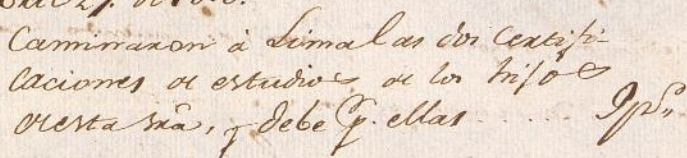 Caminaron à Lima las dos Certifi-
caciones de estudios de los hijos
de esta Srâ, q debe p. ellas . . . . . . 9 ps.